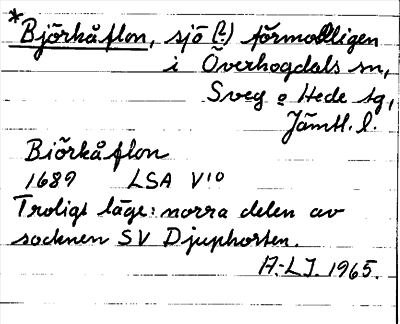 *Björkåflon, sjö (?) förmodligen
i Överhogdals sn,
Sveg o Hede tg,
Jämtl. l.
Biörkåflon
1689 LSA V10
Troligt läge: norra delen av
socknen SV Djuphorten.
A.-L.J. 1965.